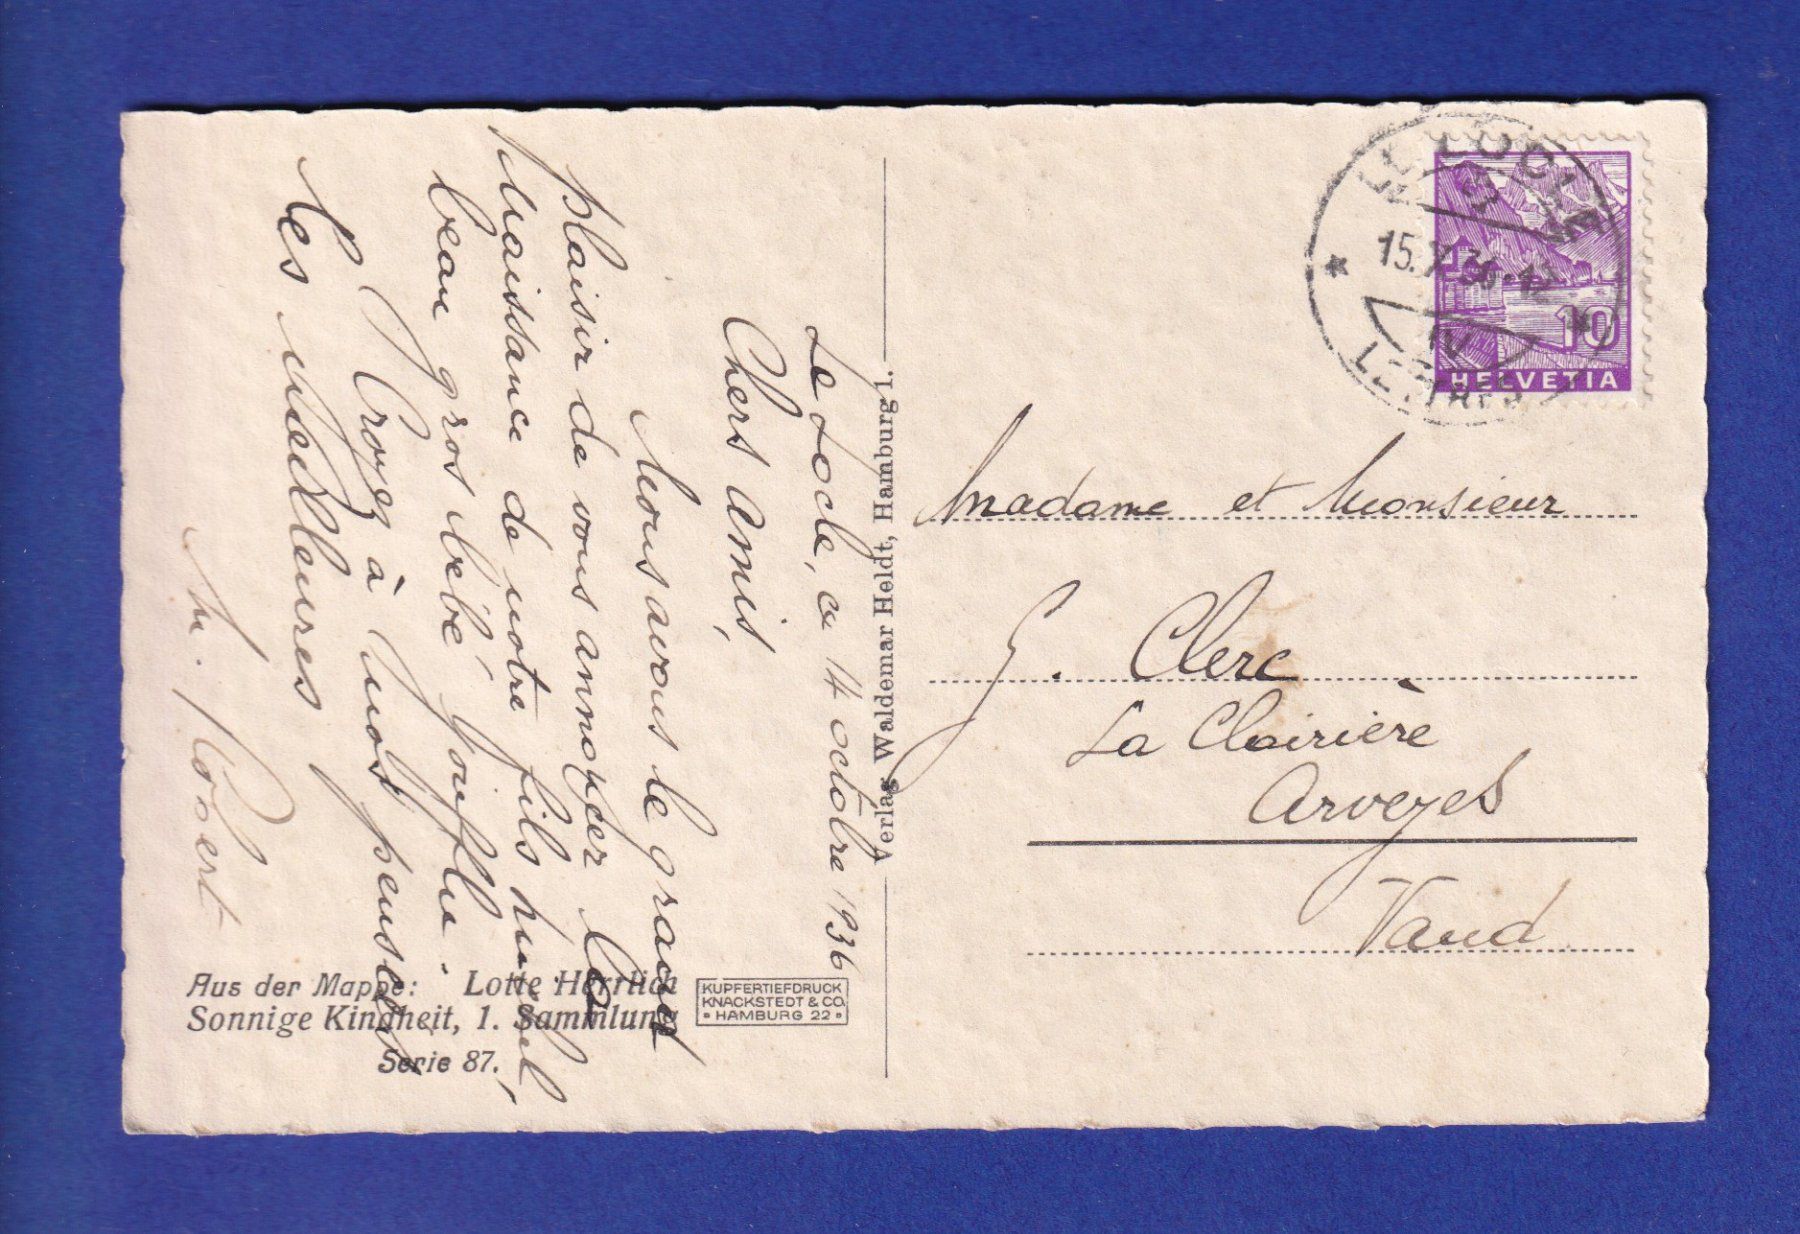 Le Locle, ce 14 octobre 1936
Chers amis,
Nous avons le grand
plaisir de vous annoncer la
naissance de notre fils
beau gros bébé joufflu.
Croyez à nos pensées
les meilleures
M. Robert
Verlag Waldemar Heldt, Hamburg 1.
Aus der Mappe: Lotte Herrlich
Sonnige Kindheit, 1. Sammlung
Serie 87.
KUPFERTIEFDRUCK
KNACKSTEDT & CO
• HAMBURG 22 •
LE LOCLE
15.X.36
LETTRES
10
HELVETIA
Madame et Monsieur
G. Clerc
La Clairière
Arveyes
Vaud